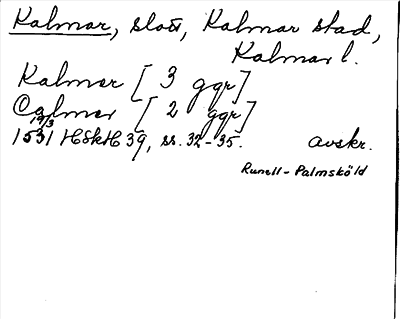 Kalmar, slott, Kalmar stad,
Kalmar l.
Kalmer [3 ggr]
Calmer [2 ggr]
19/3
1531 HSkH 39, ss. 32-35. avskr.
Runell-Palmsköld